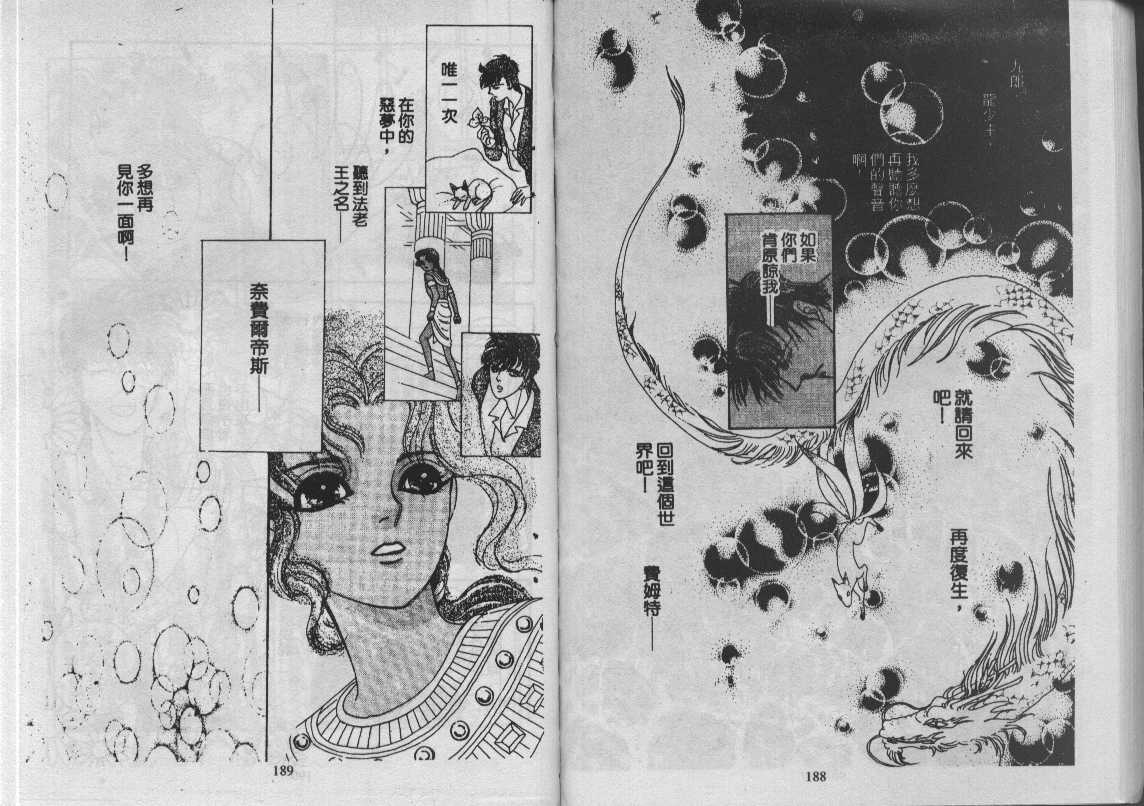 九郎、
龍少主，
我多麼想
再聽聽你
們的聲音
啊！
如果
你們
肯原諒我——
就請回來
吧！
再度復生，
回到這個世
界吧！
費姆特——
188
唯一一次
在你的
惡夢中，
聽到法老
王之名——
奈費爾帝斯——
多想再
見你一面啊！
189